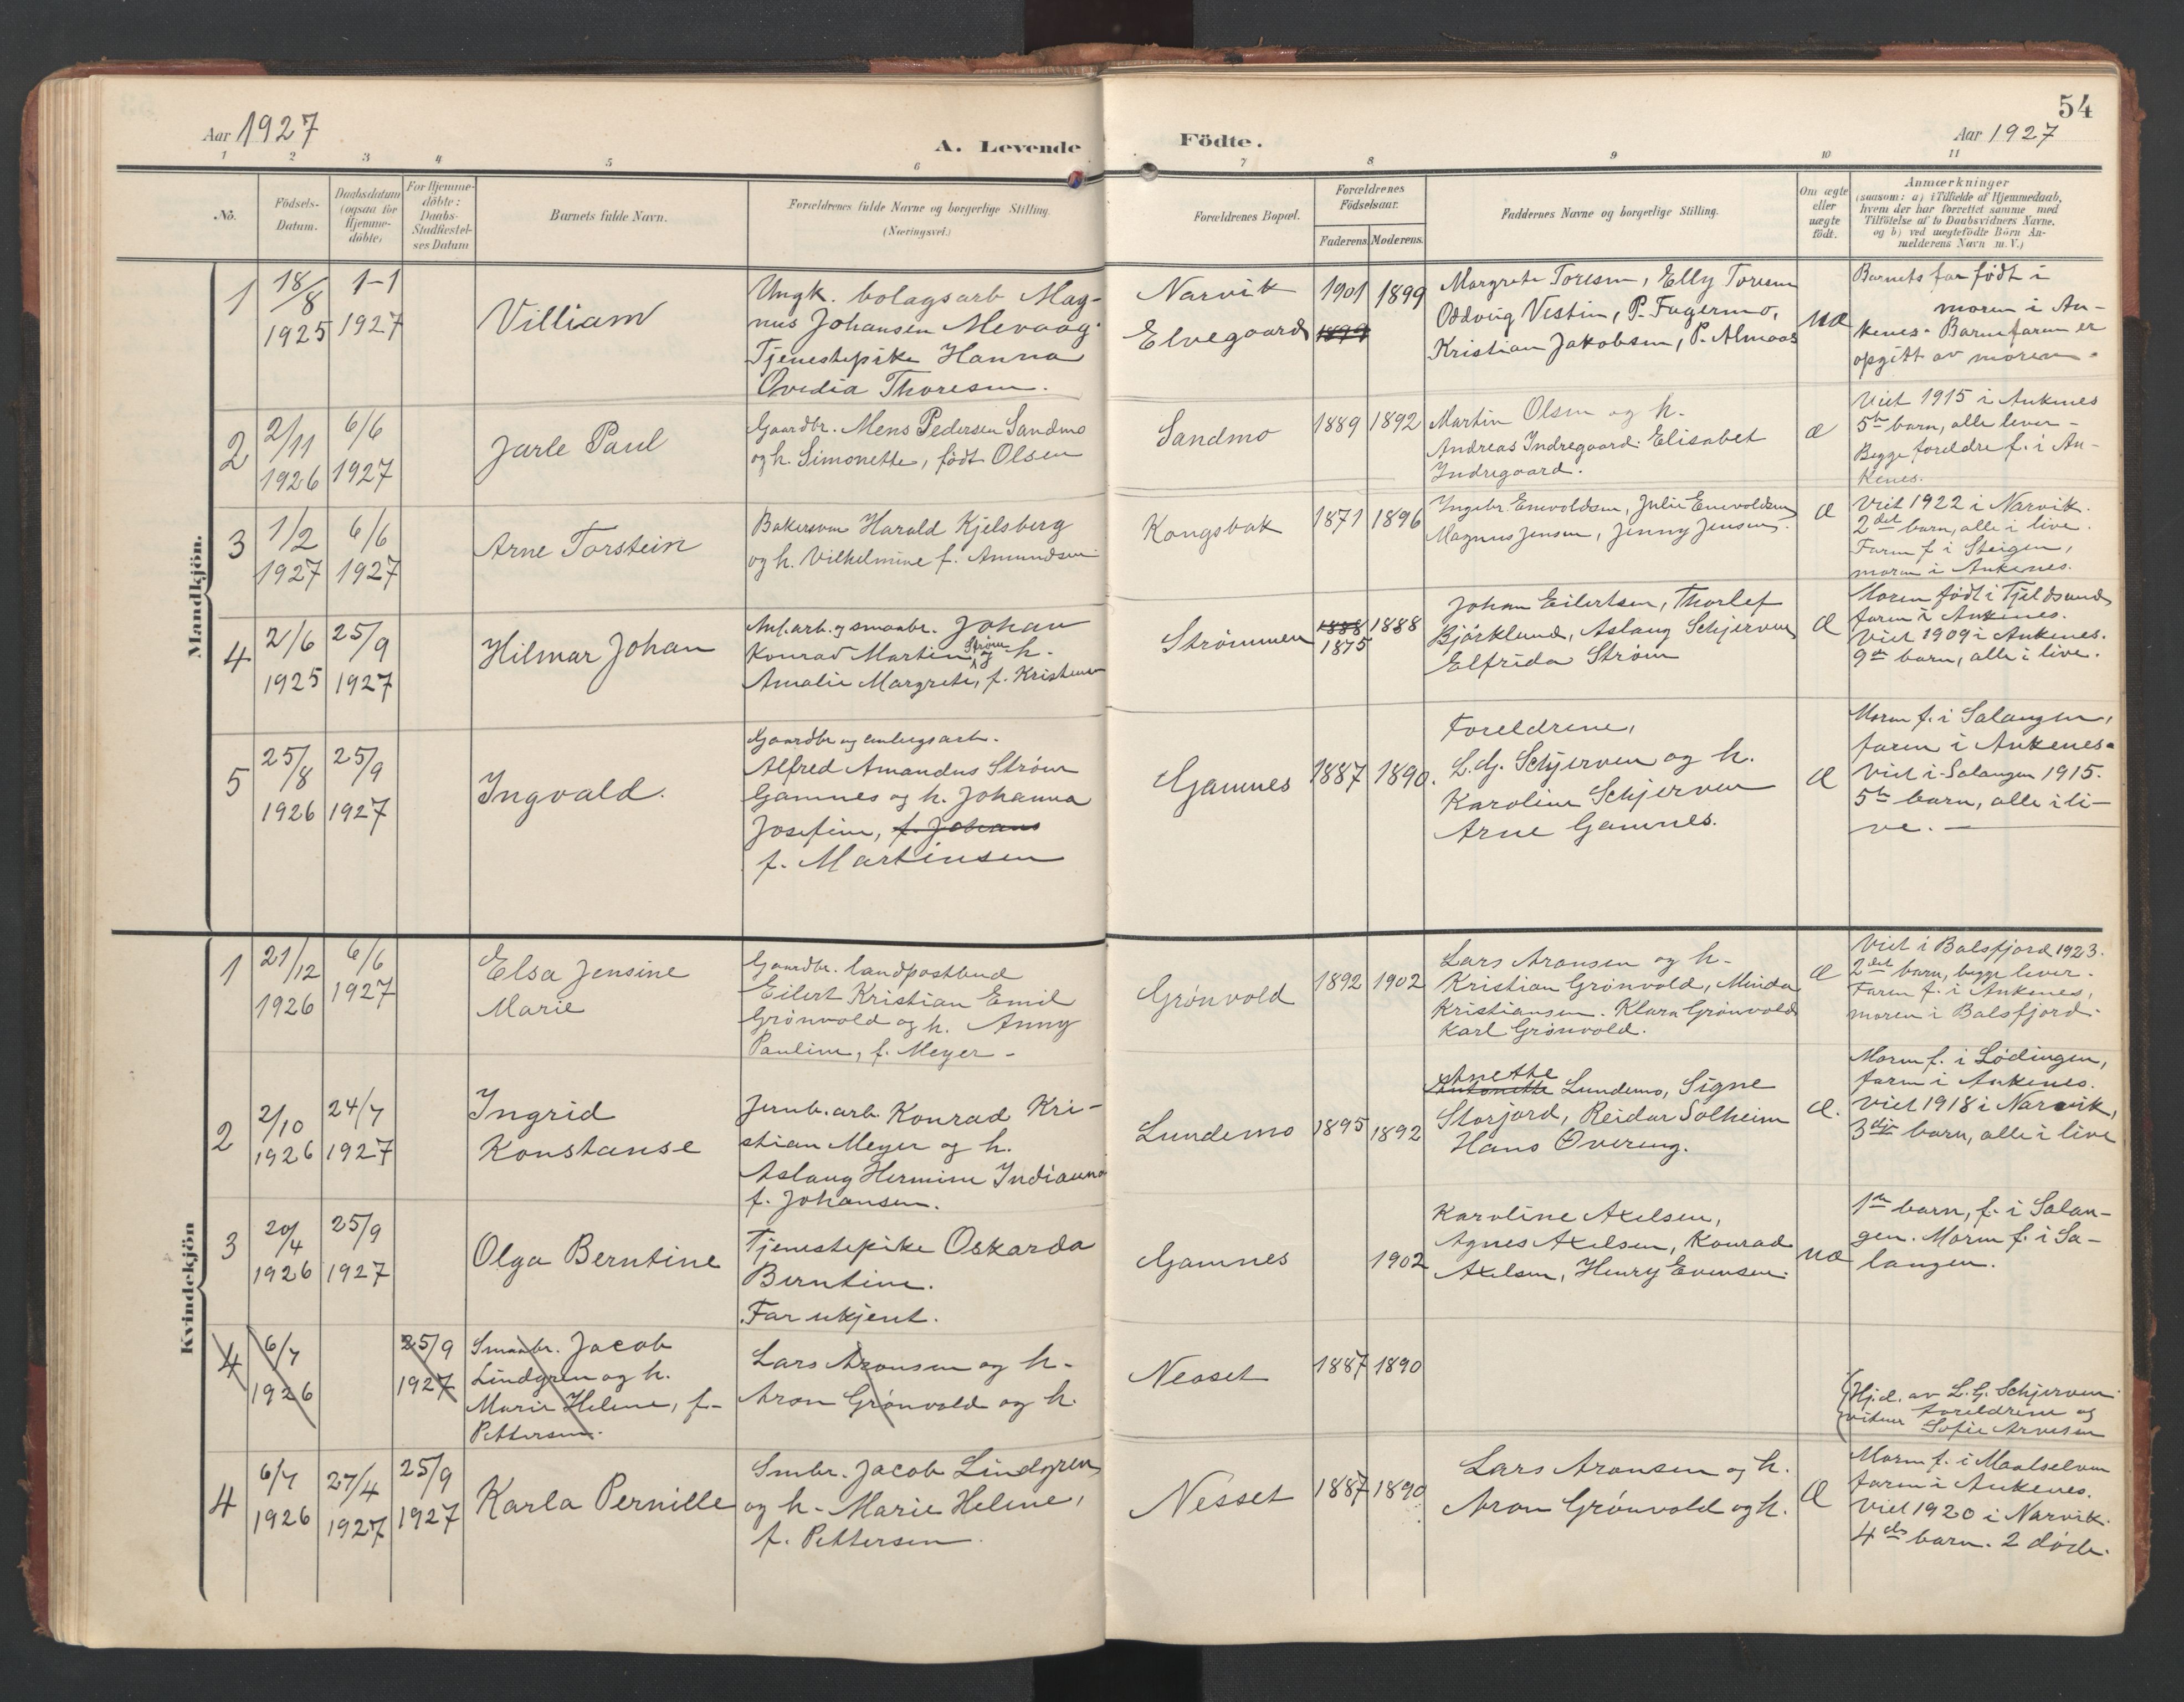 54
Aar 1927
A. Levende Födte.
Aar 1927
1 2 3 4 5 6 7 8 9 10 11
No.
Födsels-
Datum.
Daabsdatum
(ogsaa for
Hjemme-
döbte)
For Hjemme-
döbte:
Daabs-
Stadfæstel-
ses Datum
Barnets fulde Navn.
Forældrenes fulde Navne og borgerlige Stilling.
(Næringsvei.)
Forældrenes Bopæl.
Forældrenes
Födselsaar.
Faderens. Moderens.
Faddernes Navne og borgerlige Stilling.
Om ægte
eller
uægte
födt.
Anmærkninger
(saasom: a) i Tilfælde af Hjemmedaab,
hvem der har forrettet samme med
Tilföielse af to Daabsvidners Navne,
og b) ved uægtefödte Börn An-
melderens Navn m. V.)
Mandkjön.
1
18/8
1925
1-1
1927
Villiam
Ungk. bolagsarb Mag-
nus Johansen Mevaag.
Tjenestepike Hanna
Ovedia Thoresen.
Narvik
Elvegaard
1901
1899
1899
Margrete Toresen, Elly Toresen
Oddvig Vestin, P. Fagermo,
Kristian Jakobsen, P. Almaas
uæ
Barnets far født i
moren i An-
kenes. Barnefaren er
opgitt av moren.
2
2/11
1926
6/6
1927
Jarle Paul
Gaardbr. Mens Pedersen Sandmo
og h. Simonette, født Olsen
Sandmo
1889
1892
Martin Olsen og h.
Andreas Indregaard. Elisabet
Indregaard.
æ
Viet 1915 i Ankenes
5te barn, alle lever -
Begge foreldre f. i An-
kenes.
3
1/2
1927
6/6
1927
Arne Torstein
Bakersvm Harald Kjelsberg
og h. Vilhelmine f. Amundsen
Kongsbak
1871
1896
Ingebr. Enevoldsen, Julie Enevoldsen
Magnus Jensen, Jenny Jensen.
æ
Viet 1922 i Narvik.
2det barn, alle i live.
Faren f. i Steigen,
moren i Ankenes.
4
2/6
1925
25/9
1927
Hilmar Johan
Anl.arb. og smaabr. Johan
Konrad Martin Strøm og h.
Amalie Margrete, f. Kristensen
Strømmen
1888
1875
1888
Johan Eilertsen, Thorlef
Bjørklund, Aslaug Schjerven
Elfrida Strøm
æ
Moren født i Tjeldsund,
faren i Ankenes.
Viet 1909 i Ankenes.
9de barn, alle i live.
5
25/8
1926
25/9
1927
Ingvald.
Gaardbr og anlegsarb.
Alfred Amandus Strøm
Gamnes og h. Johanna
Josefine, f. Johans
f. Martinsen
Gamnes
1887
1890.
Foreldrene,
L.G. Schjerven og h.
Karoline Schjerven
Arne Gamnes.
æ
Moren f. i Salangen,
faren i Ankenes.
Viet i Salangen 1915.
5te barn, alle i li-
ve. -
Kvindekjön
1
21/12
1926
6/6
1927
Elsa Jensine
Marie
Gaardbr. landpostbud
Eilert Kristian Emil
Grønvold og h. Anny
Pauline, f. Meyer -
Grønvold
1892
1902
Lars Aronsen og h.
Kristian Grønvold, Minda
Kristiansen. Klara Grønvold
Karl Grønvold.
æ
Viet i Balsfjord 1923.
2det barn, begge lever.
Faren f. i Ankenes,
moren i Balsfjord.
2
2/10
1926
24/7
1927
Ingrid
Konstanse
Jernb.arb. Konrad Kri-
stian Meyer og h.
Aslaug Hermine Indianna
f. Johansen.
Lundemo
1895
1892
Anette
Antonette Lundemo, Signe
Storjord, Reidar Solheim
Hans Overeng.
æ.
Moren f. i Lødingen,
faren i Ankenes.
Viet 1918 i Narvik,
3dje barn, alle i live
3
20/4
1926
25/9
1927
Olga Berntine
Tjenestepike Oskarda
Berntine.
Far ukjent.
Gamnes
1902
Karoline Axelsen,
Agnes Axelsen, Konrad
Axelsen, Henry Evensen.
uæ
1ste barn, f. i Salan-
gen. Moren f. i Sa-
langen.
4
6/7
1926
25/9
1927
Smaabr. Jacob
Lindgren og h.
Marie Helene, f.
Pettersen.
Lars Aronsen og h.
Aron Grønvold og h.
Nesset
1887
1890
(Hj.d. av L.G. Schjerven.
vitner foreldrene og
Sofie Arnesen
4
6/7
1926
27/4
1927
25/9
1927
Karla Pernille
Smbr. Jacob Lindgren
og h. Marie Helene,
f. Pettersen.
Nesset
1887
1890
Lars Aronsen og h.
Aron Grønvold og h.
æ
Moren f. i Maalselven
faren i Ankenes.
Viet 1920 i Narvik.
4de barn. 2 døde.